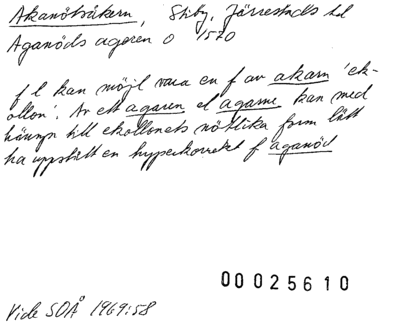 Akanötsåkern, Stiby, Järrestads hd
Aganöds ageren 0 1570
f l kan möjl vara en f av akarn 'ek-
ollon'. Av ett agaren el agarne kan med
hänsyn till ekollonets nötlika form lätt
ha uppstått en hyperkorrekt f aganöd
00025610
Vide SOÅ 1969:58